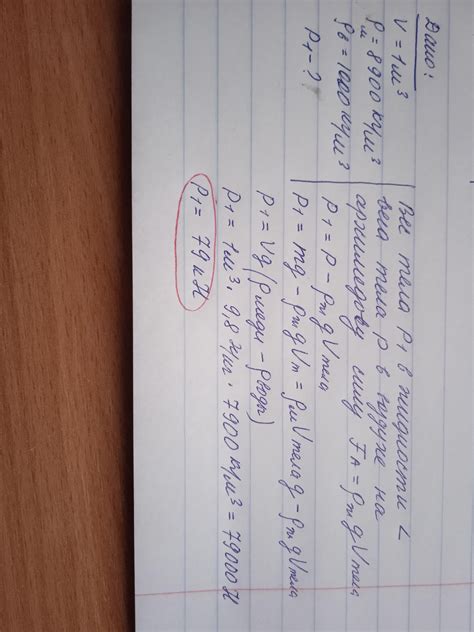 Дано:
V = 1 м³
ρм = 8900 кг/м³
ρв = 1000 кг/м³
P₁ - ?
Вес тела P₁ в жидкости <
веса тела P в воздухе на
архимедову силу F_A = ρж g Vтела
P₁ = P - ρж g Vтела
P₁ = mg - ρж g Vт = ρм Vтела g - ρж g Vтела
P₁ = Vg (ρмеди - ρводы)
P₁ = 1 м³ · 9,8 Н/кг · 7900 кг/м³ = 79000 Н
P₁ = 79 кН